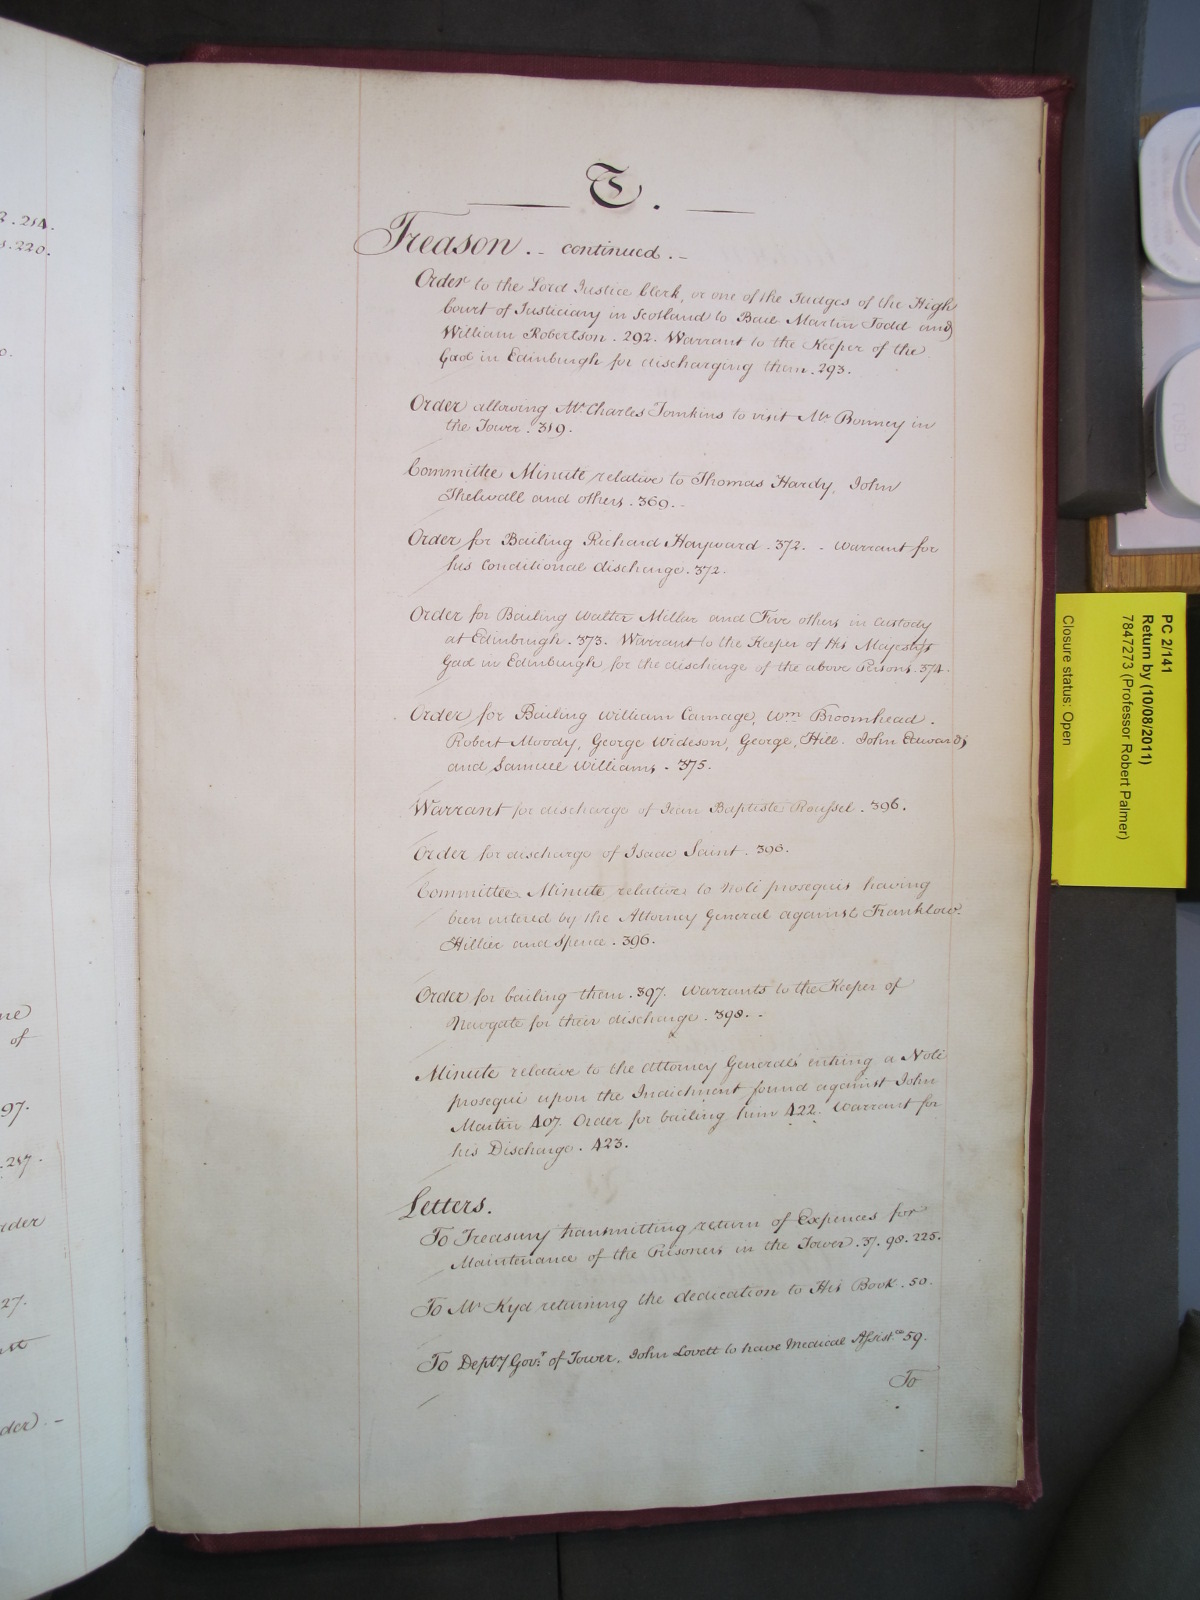 T.
Treason. - continued. -
Order to the Lord Justice Clerk, or one of the Judges of the High
Court of Justiciary in Scotland to Bail Martin Todd and
William Robertson. 292. Warrant to the Keeper of the
Gaol in Edinburgh for discharging them. 293.
Order allowing Mr Charles Tomkins to visit Mr Bonney in
the Tower. 319.
Committee Minute relative to Thomas Hardy, John
Thelwall and others. 369. -
Order for Bailing Richard Hayward. 372. - Warrant for
his conditional discharge. 372.
Order for Bailing Walter Millar and Five others in Custody
at Edinburgh. 373. Warrant to the Keeper of His Majesty's
Gaol in Edinburgh for the discharge of the above Persons. 374.
Order for Bailing William Camage, Wm Broomhead.
Robert Moody, George Wideson, George, Hill. John Edwards
and Samuel Williams. 375.
Warrant for discharge of Jean Baptiste Roussel. 396.
Order for discharge of Isaac Saint. 396.
Committee Minute relative to Noli prosequis having
been entered by the Attorney General against Franklow.
Hillier and Spence. 396.
Order for bailing them. 397. Warrants to the Keeper of
Newgate for their discharge. 398. -
Minute relative to the Attorney Generals entring a Noli
prosequi upon the Indictment found against John
Martin 407. Order for bailing him 422. Warrant for
his Discharge. 423.
Letters.
To Treasury transmitting return of Expences for
Maintenance of the Prisoners in the Tower. 37. 98. 225.
To Mr Kyd returning the dedication to His Book. 50.
To Depty Govr of Tower. John Lovett to have Medical Assistce 59.
To
PC 2/141
Return by (10/08/2011)
7847273 (Professor Robert Palmer)
Closure status: Open
214.
220.
of
97.
27.